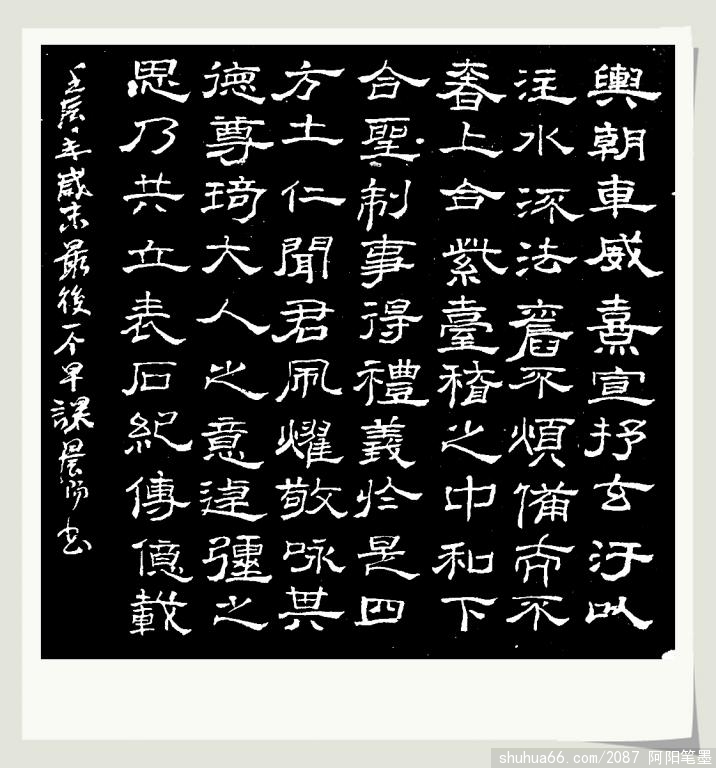 輿朝車威熹宣抒玄汙以
注水流法舊不煩備而不
奢上合紫臺稽之中和下
合聖制事得禮義於是四
方土仁聞君風燿敬咏其
德尊琦大人之意逴彌之
思乃共立表石紀傳億載
壬辰年歲末最後一个早課晨阳书
shuhua66.com/2087 阿阳笔墨